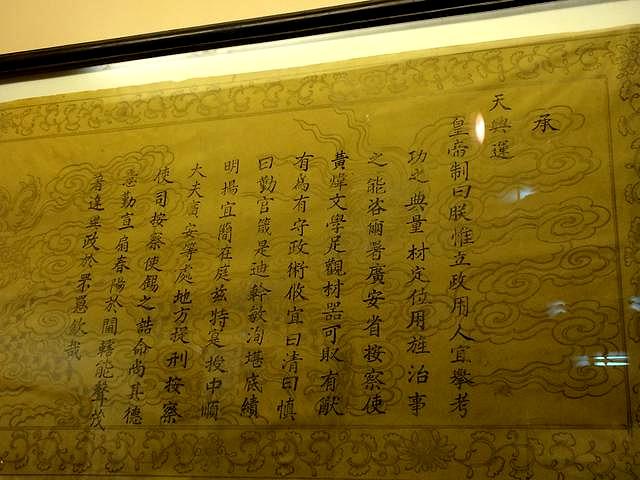 承
天興運
皇帝制曰朕惟立政用人宜舉考
功之典量材定位用旌治事
之能咨爾署廣安省按察使
黃煒文學足觀材器可取有猷
有為有守政術攸宜曰清曰慎
曰勤官箴是迪幹敏洵堪底績
明揚宜簡在庭茲特寔授中順
大夫廣安等處地方提刑按察
使司按察使錫之誥命尚其德
意勤宣扇春陽於閫轄能聲茂
著達政於欽哉